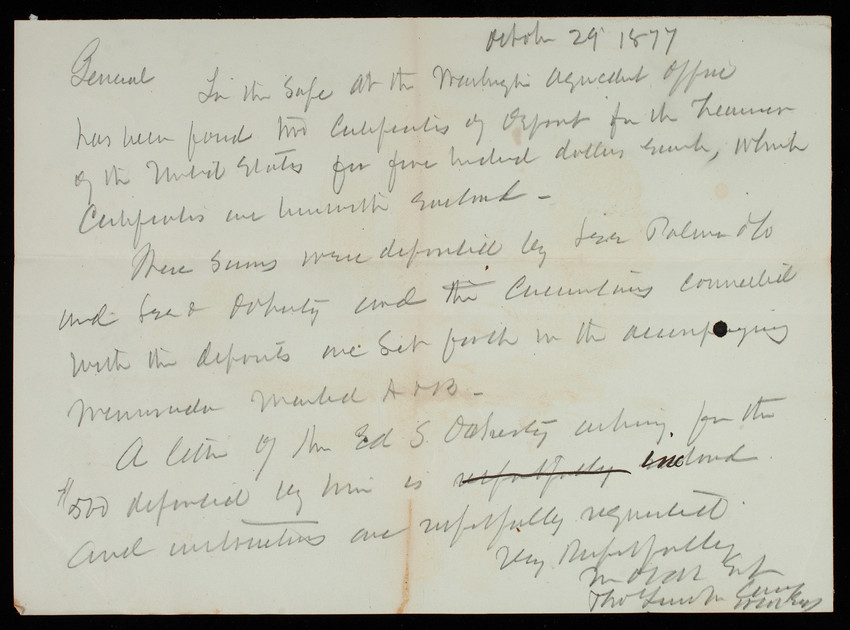 October 29 1877
General In the Safe at the Washington Aqueduct Office
has been found two Certificates of Deposit for the Treasurer
of the United States for five hundred dollars each, which
Certificates are herewith enclosed -
These sums were deposited by Palmer & Co
and Doherty and the Circumstances connected
with the deposits are set forth in the accompanying
Memoranda marked A & B -
A letter of Mr Ed S. Doherty asking for the
$500 deposited by him is respectfully inclosed.
and instructions are respectfully requested.
Very Respectfully
Thos Lincoln Casey